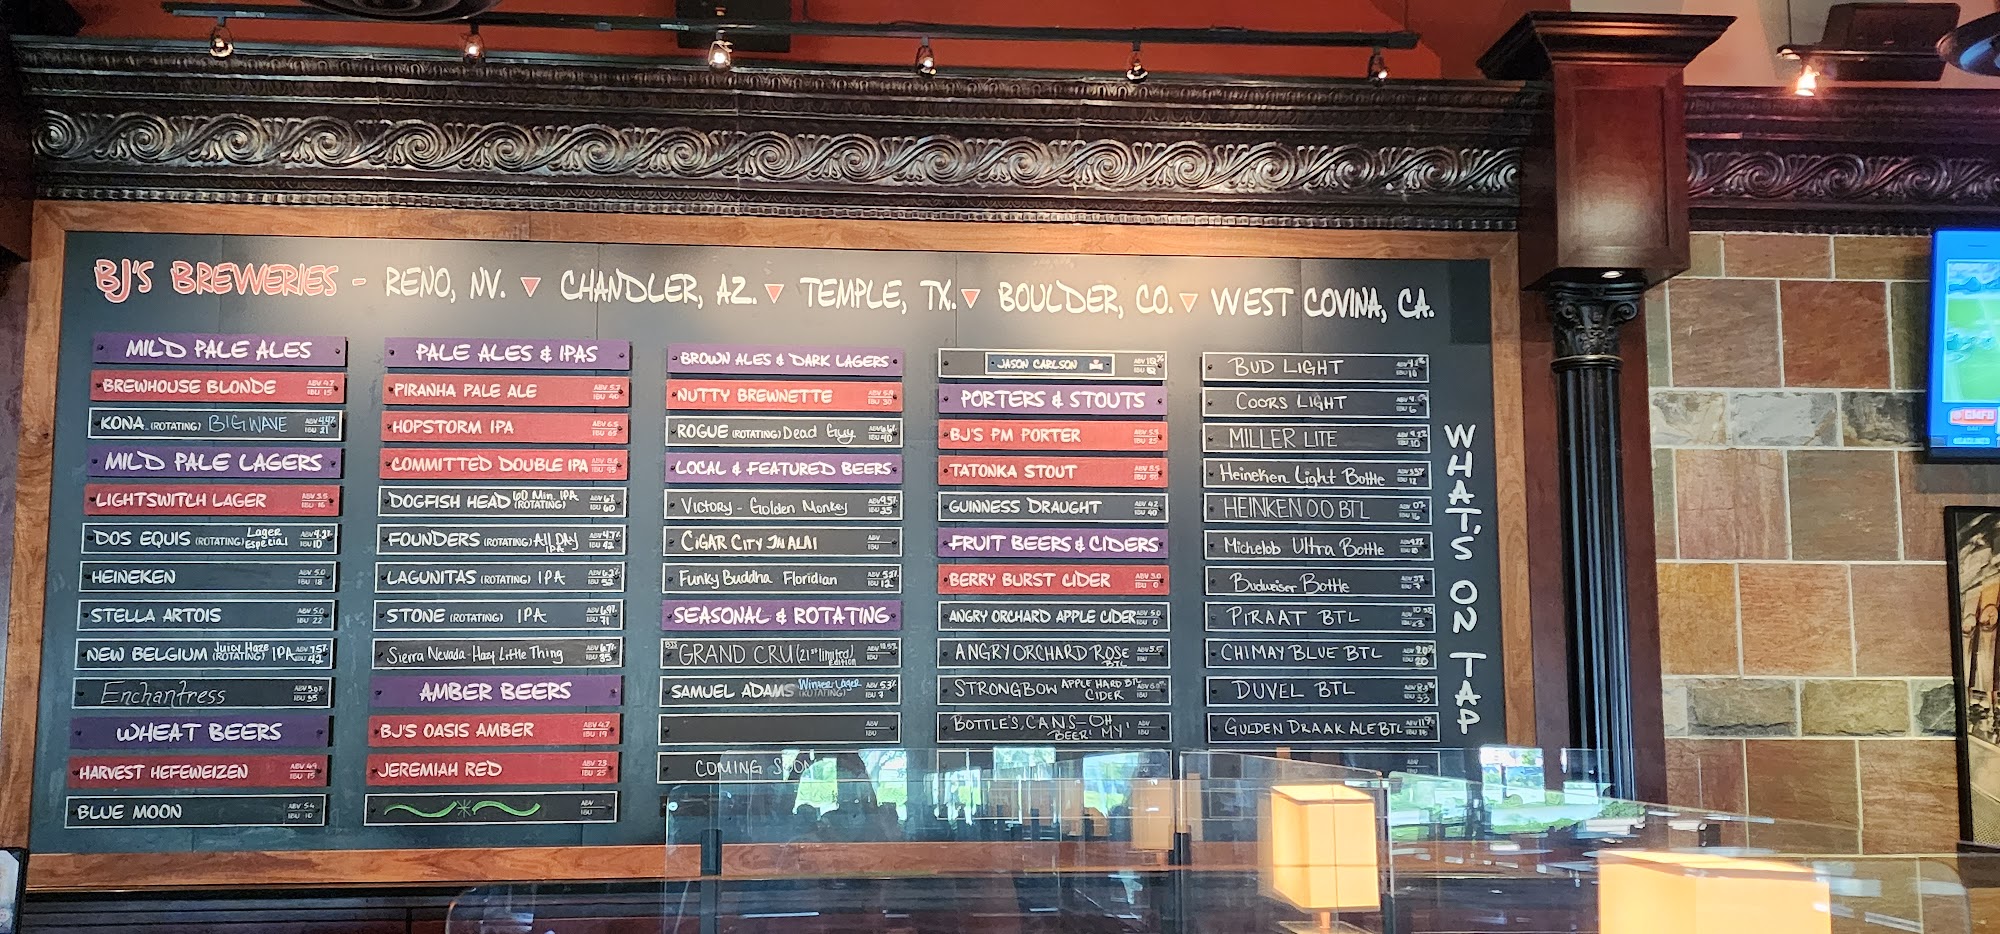 BJ'S BREWERIES - RENO, NV. ▼ CHANDLER, AZ. ▼ TEMPLE, TX. ▼ BOULDER, CO. ▼ WEST COVINA, CA.
MILD PALE ALES
BREWHOUSE BLONDE ABV 4.9 IBU 15
KONA (ROTATING) BIG WAVE ABV 4.4% IBU 21
MILD PALE LAGERS
LIGHTSWITCH LAGER ABV 3.5 IBU
DOS EQUIS (ROTATING) Lager Especial ABV 4.2% IBU 10
HEINEKEN ABV 5.0 IBU 18
STELLA ARTOIS ABV 5.0 IBU 22
NEW BELGIUM Juicy Haze (ROTATING) IPA ABV 7.5% IBU 42
Enchantress ABV 5.0% IBU 35
WHEAT BEERS
HARVEST HEFEWEIZEN ABV 4.9 IBU 15
BLUE MOON ABV 5.4 IBU 10
PALE ALES & IPAS
PIRANHA PALE ALE ABV 5.7 IBU
HOPSTORM IPA ABV 6.5 IBU 65
COMMITTED DOUBLE IPA ABV IBU
DOGFISH HEAD 60 Min. IPA (ROTATING) ABV 6% IBU 60
FOUNDERS (ROTATING) All Day IPA ABV 4.7% IBU 42
LAGUNITAS (ROTATING) IPA ABV 6.2% IBU 52
STONE (ROTATING) IPA ABV 6.9% IBU 71
Sierra Nevada-Hazy Little Thing ABV 6.7% IBU 35
AMBER BEERS
BJ'S OASIS AMBER ABV 4.7 IBU 19
JEREMIAH RED ABV 7.3 IBU 25
ABV IBU
BROWN ALES & DARK LAGERS
NUTTY BREWNETTE ABV 5.9 IBU 30
ROGUE (ROTATING) Dead Guy ABV IBU 40
LOCAL & FEATURED BEERS
Victory - Golden Monkey ABV 9.5% IBU 25
CiGAR CITY JAI ALAI ABV IBU
Funky Buddha Floridian ABV 5.2% IBU 12
SEASONAL & ROTATING
BJ'S GRAND CRU (21st limited Edition) ABV IBU
SAMUEL ADAMS Winter Lager (ROTATING) ABV 5.3% IBU 7
ABV IBU
COMING SOON
JASON CARLSON ABV IBU
PORTERS & STOUTS
BJ'S PM PORTER ABV 5.5 IBU 25
TATONKA STOUT ABV 8.5 IBU 50
GUINNESS DRAUGHT ABV 4.2 IBU 40
FRUIT BEERS & CIDERS
BERRY BURST CIDER ABV 5.0 IBU 0
ANGRY ORCHARD APPLE CIDER ABV 5.0 IBU 0
ANGRY ORCHARD ROSE BTL ABV 5.5% IBU
STRONGBOW APPLE HARD BTL CIDER ABV IBU
BOTTLE'S, CANS-OH BEER! MY! ABV IBU
BUD LIGHT ABV 4.2% IBU 10
COORS LIGHT ABV IBU
MILLER LITE ABV 4.2% IBU 10
Heineken Light Bottle ABV IBU 12
HEINKEN 0.0 BTL ABV 0% IBU
Michelob Ultra Bottle ABV IBU 10
Budweiser Bottle ABV 5% IBU 7
PIRAAT BTL ABV 10.5% IBU 23
CHIMAY BLUE BTL ABV 9.0% IBU 20
DUVEL BTL ABV 8.5% IBU 33
GULDEN DRAAK ALE BTL ABV 11% IBU
ABV
WHAT'S ON TAP